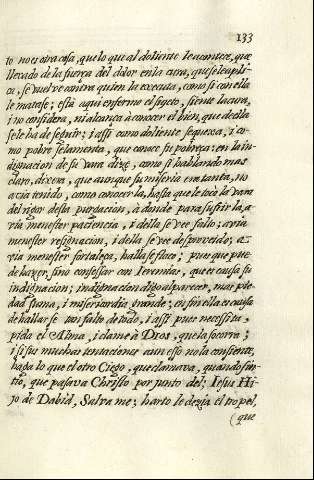 133
to no es otra cosa, que lo que al doliente le acontece, que
llevado de la fuerça del dolor en la cura, que se le apli-
ca, se vuelve contra quien la executa, como si con ella
le matase; està aqui enfermo el sugeto, siente la cura,
i no considera, ni alcança à conocer el bien, que de ella
se le ha de seguir; i assi como doliente se quexa, i co-
mo pobre se lamenta, que conoce su pobreza: en la in-
dignacion de su vara dize, como si hablando mas
claro, dixera, que aunque su miseria era tanta, no
avia tenido, como conocerla, hasta que le tocò la vara
del rigor desta purgacion, à donde para sufrirla a-
via menester paciencia, i della se vee falto; avia
menester resignacion, i della se vee desproveido; a-
via menester fortaleça, hallase flaco; pues que pue-
de hazer, sino confessar con Ieremias, que es causa su
indignacion; indignacion digo al parecer, mas pie-
dad suma, i misericordia grande; en fin ella es causa
de hallarse tan falto de todo, i assi pues necessita,
pida el Alma, i clame à DIOS, que la socorra;
i si sus muchas tentaciones aun esso no la consienten,
haga lo que el otro Ciego, que clamava, quando sin-
tiò, que pasava Christo por junto del; Iesus Hi-
jo de Dabid, Salva me; harto le dezia el tropel,
(que